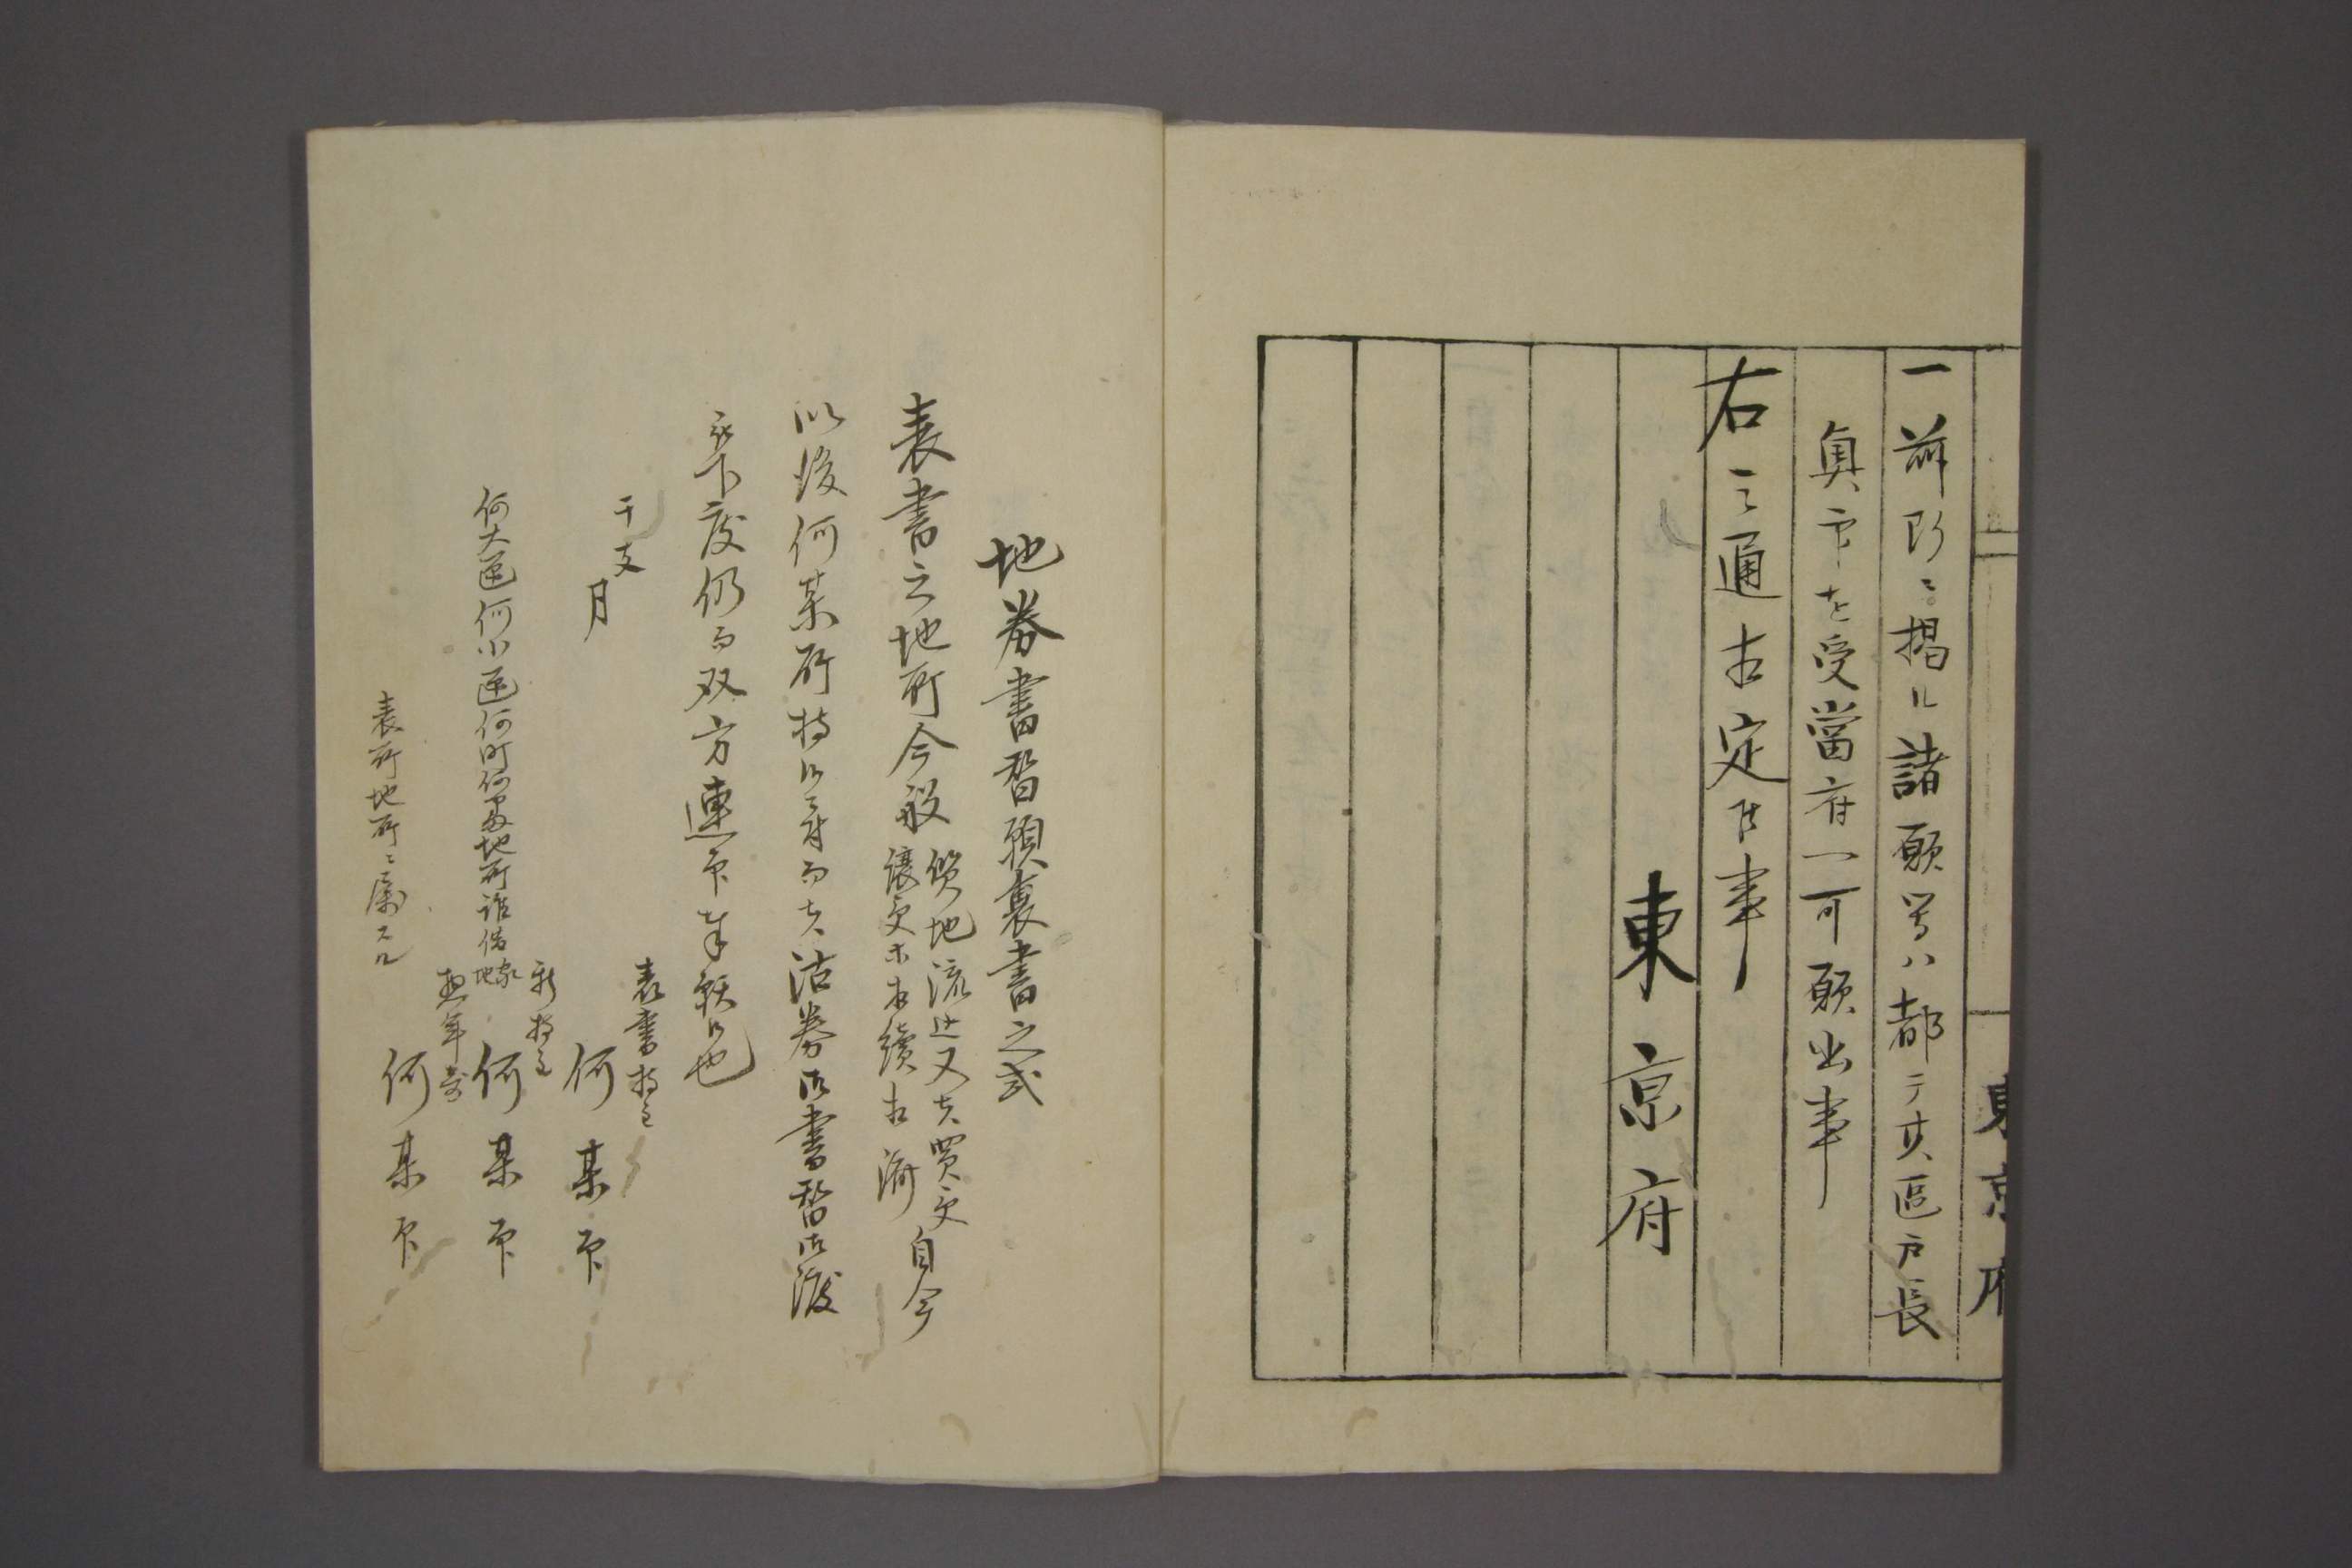 一前所ニ掲ル諸願等ハ都テ其區戸長
奥印を受當府ニ可願出事
右之通相定候事
東京府
東京府
地券書替願裏書之式
表書之地所今般
質地流込又者買受
譲受等相續相濟
自今
以後何某所持候ニ付而者沽券御書替御渡
被下度仍而双方連印奉願候也
干支
月
表書持主
何某印
何大區何小區何町何番地所誰借
家
地
新持主
何某印
表所地所ニ属スル
町年寄
何某印